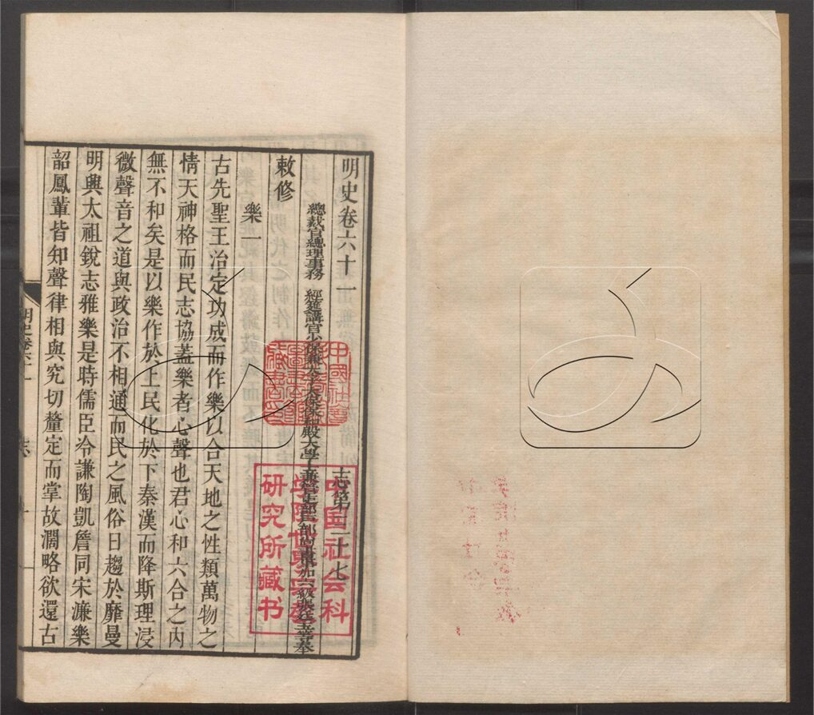 明史卷六十一
志第三十七
總裁官總理事務 經筵講官少保兼太子太保保和殿大學士兼管吏部戶部尚書事加六級張廷玉等奉
敕修
樂一
古先聖王治定功成而作樂以合天地之性類萬物之
情天神格而民志協蓋樂者心聲也君心和六合之內
無不和矣是以樂作於上民化於下秦漢而降斯理浸
微聲音之道與政治不相通而民之風俗日趨於靡曼
明興太祖銳志雅樂是時儒臣冷謙陶凱詹同宋濂樂
韶鳳輩皆知聲律相與究切釐定而掌故濶略欲還古
明史卷六十一
志
中国社会科
学院世界宗教
研究所藏书